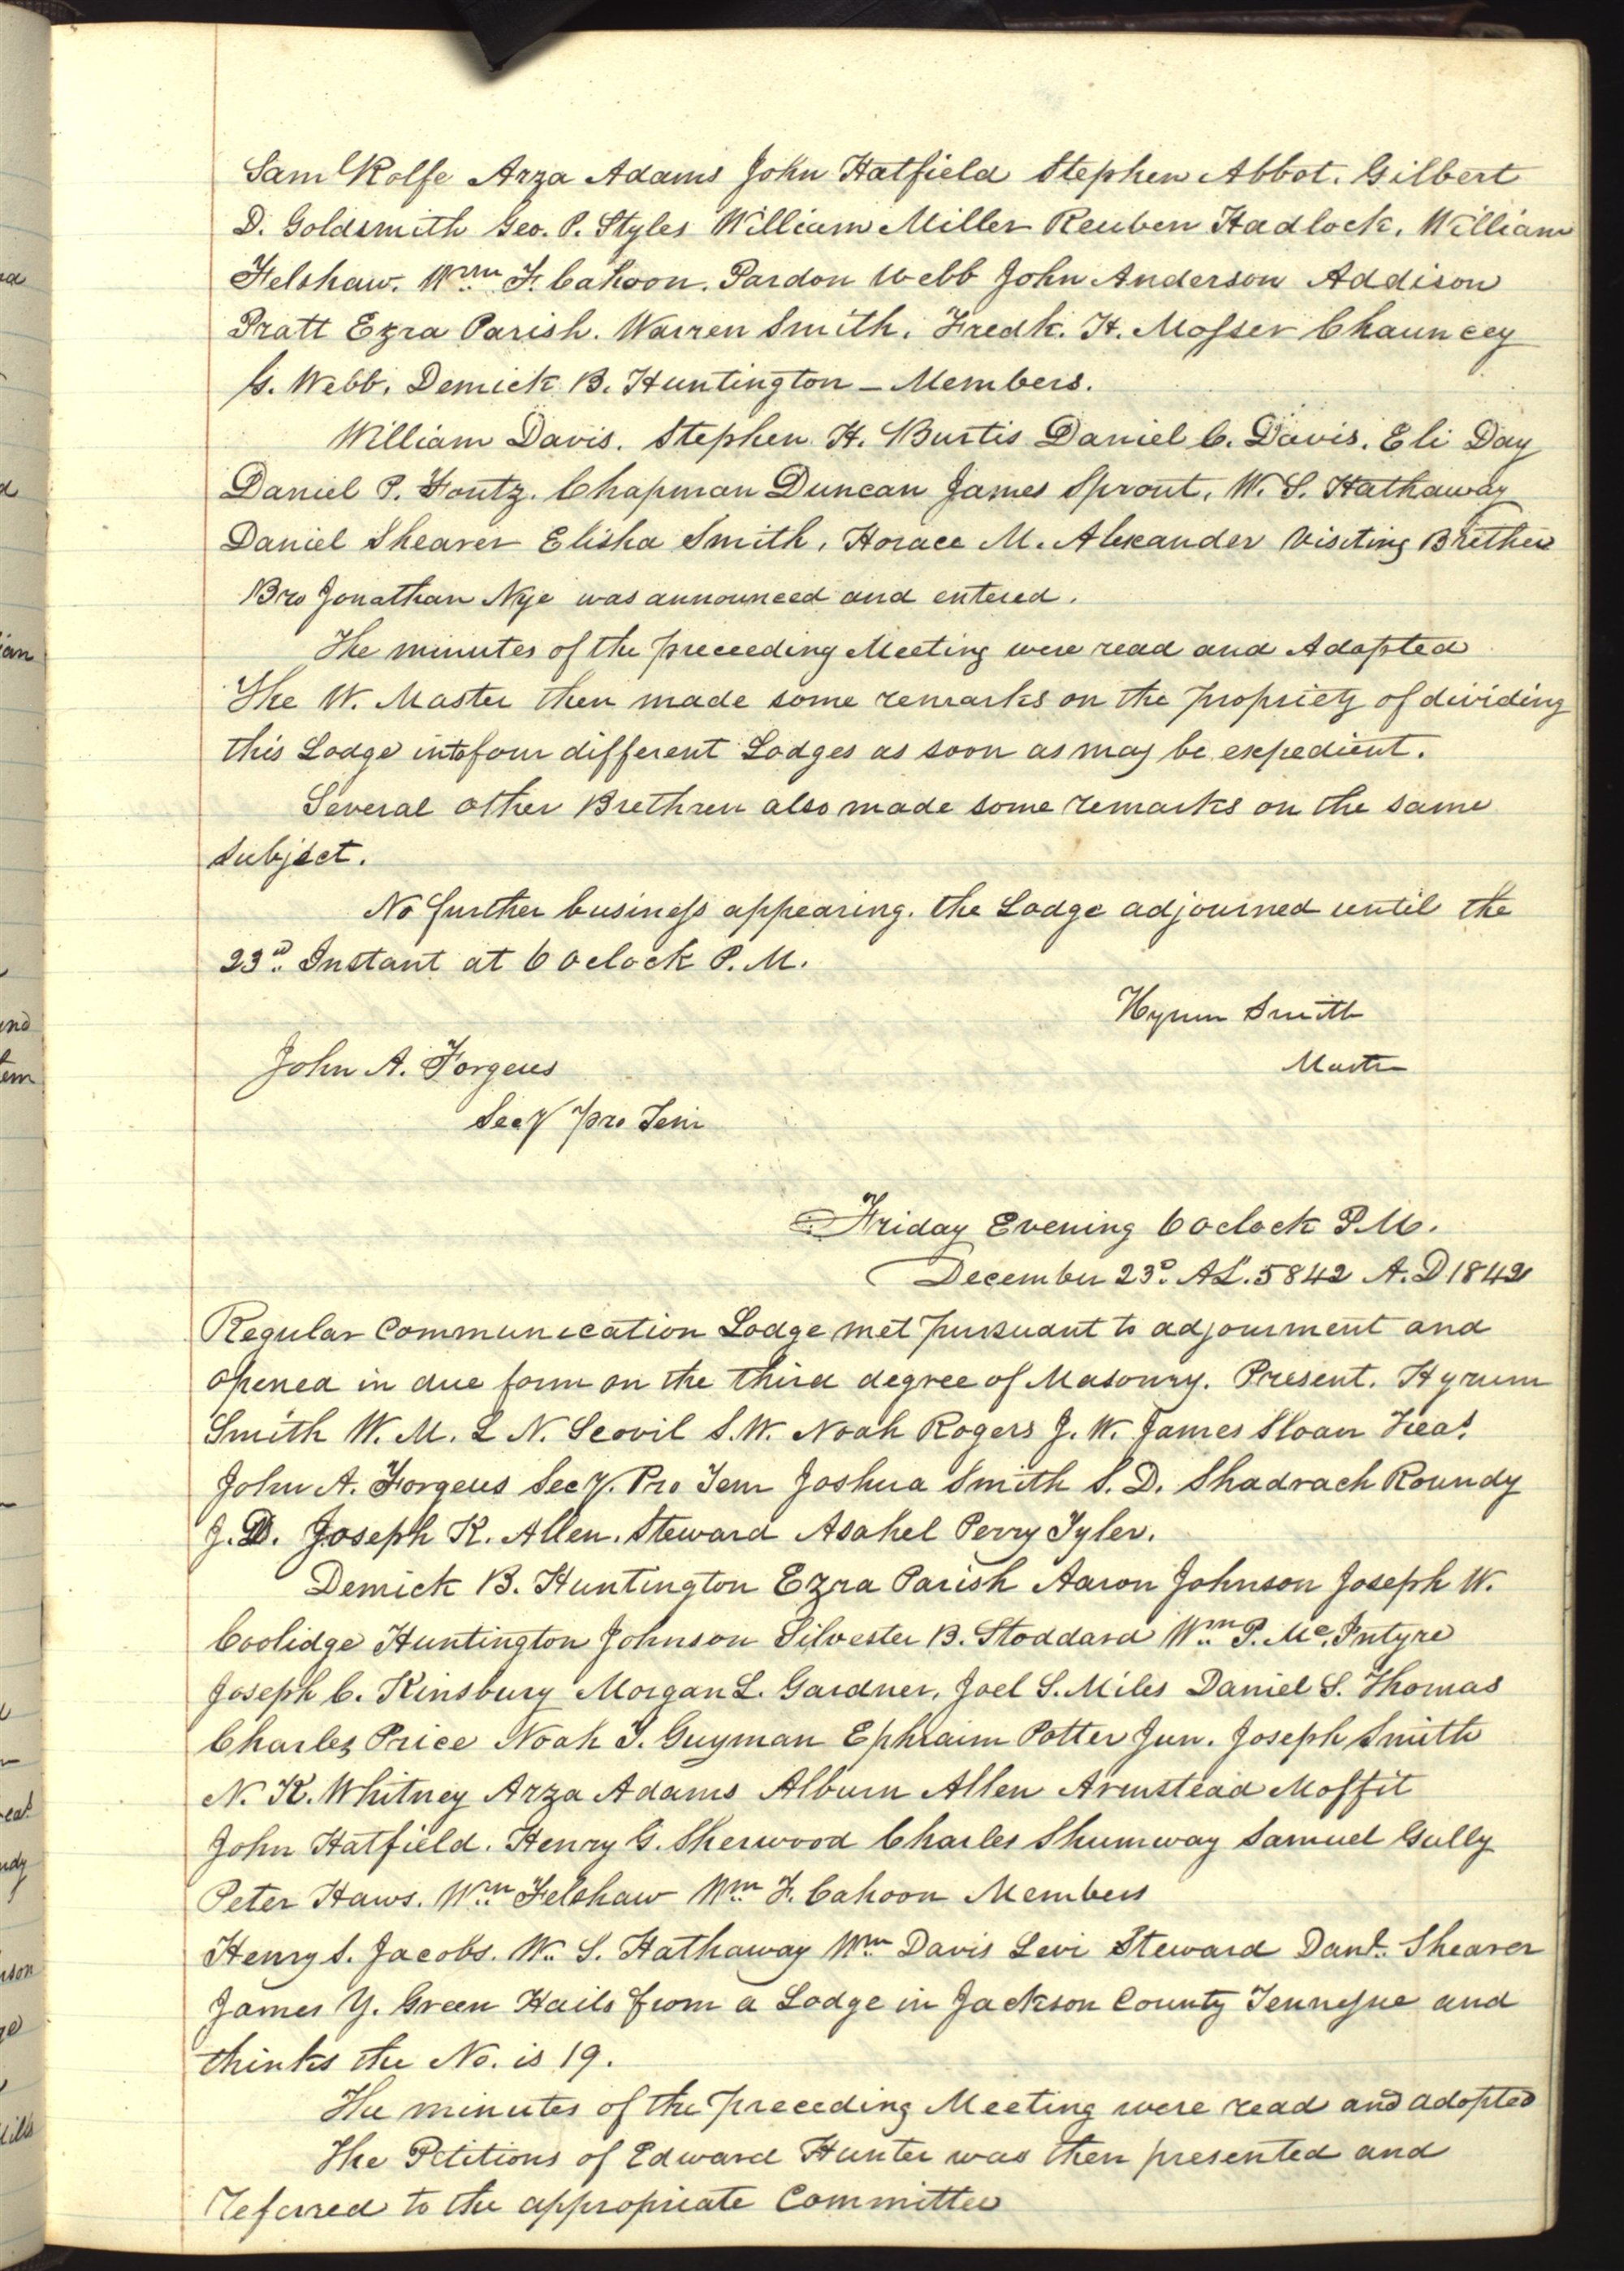 Saml Rolfe Arza Adams John Hatfield Stephen Abbot. Gilbert
D. Goldsmith Geo. P. Styles William Miller Reuben Hadlock, William
Felshaw. Wm F. Cahoon. Pardon Webb John Anderson Addison
Pratt Ezra Parish. Warren Smith. Fredk. H. Mosser Chauncey
G. Webb. Demick B. Huntington – Members.
William Davis. Stephen H. Burtis Daniel C. Davis. Eli Day
Daniel P. Fontz. Chapman Duncan James Sprout, W. S. Hathaway
Daniel Shearer Elisha Smith, Horace M. Alexander Visiting Brethen
Bro Jonathan Nye was announced and entered.
The minutes of the preceeding Meeting were read and Adopted
The W. Master then made some remarks on the propriety of dividing
this Lodge into four different Lodges as soon as may be expedient.
Several other Brethren also made some remarks on the same
subject.
No further business appearing. the Lodge adjourned until the
23d. Instant at 6 Oclock P.M.
Hyrum Smith
Master
John A. Forgeus
Secy pro Tem
Friday Evening 6 oclock P.M.
December 23d. AL. 5842 A.D 1842
Regular Communication Lodge met pursuant to adjournment and
opened in due form on the third degree of Masonry. Present. Hyrum
Smith W. M. L N. Scovil S.W. Noah Rogers J. W. James Sloan Treas.
John A. Forgeus Secy. Pro Tem Joshua Smith S. D. Shadrach Roundy
J.D. Joseph K. Allen. Steward Asahel Perry Tyler.
Demick B. Huntington Ezra Parish Aaron Johnson Joseph W.
Coolidge Huntington Johnson Silvester B. Stoddard Wm P. Mc.Intyre
Joseph C. Kinsbury Morgan L. Gardner, Joel S. Miles Daniel S. Thomas
Charles Price Noah T. Guyman Ephraim Potter Jun. Joseph Smith
N. K. Whitney Arza Adams Album Allen Armstead Moffit
John Hatfield. Henry G. Sherwood Charles Shumway Samuel Gully
Peter Haws. Wm Felshaw Wm F. Cahoon Members
Henry S. Jacobs. W. S. Hathaway Wm Davis Levi Steward Danl. Shearer
James Y. Green Hails from a Lodge in Jackson County Tennessee and
thinks the No. is 19.
The minutes of the preceeding Meeting were read and adopted
The Petitions of Edward Hunter was then presented and
referred to the appropriate Committee